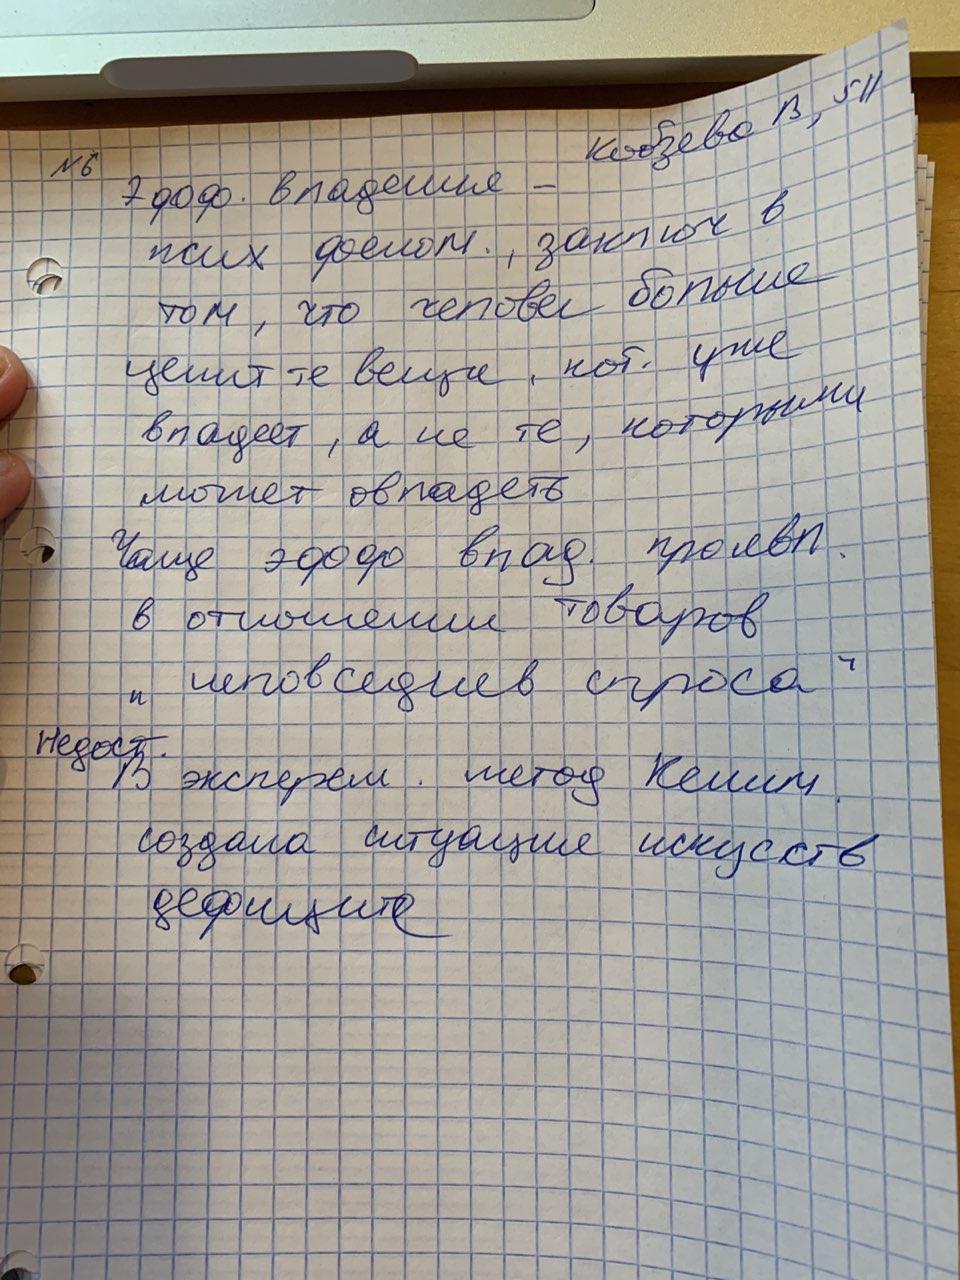 Кобзева В, 511
№6
Эфф. владения –
псих феном., заключ в
том, что человек больше
ценит те вещи, кот. уже
владеет, а не те, которыми
может овладеть
Чаще эфф влад. проявл.
в отношении товаров
"неповседнев спроса"
Недост.
В эксперем. метод Канем.
создана ситуация искусств
дефицита